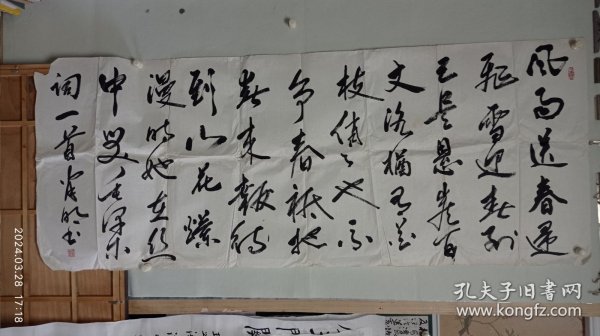 风雨送春归
飛雪迎春到
已是悬崖百
丈冰猶有花
枝俏々也不
争春祗把
春来報待
到山花爛
漫时她在丛
中笑毛泽东
词一首 明书
2024.03.28 17:18
孔夫子旧书网
www.kongfz.com